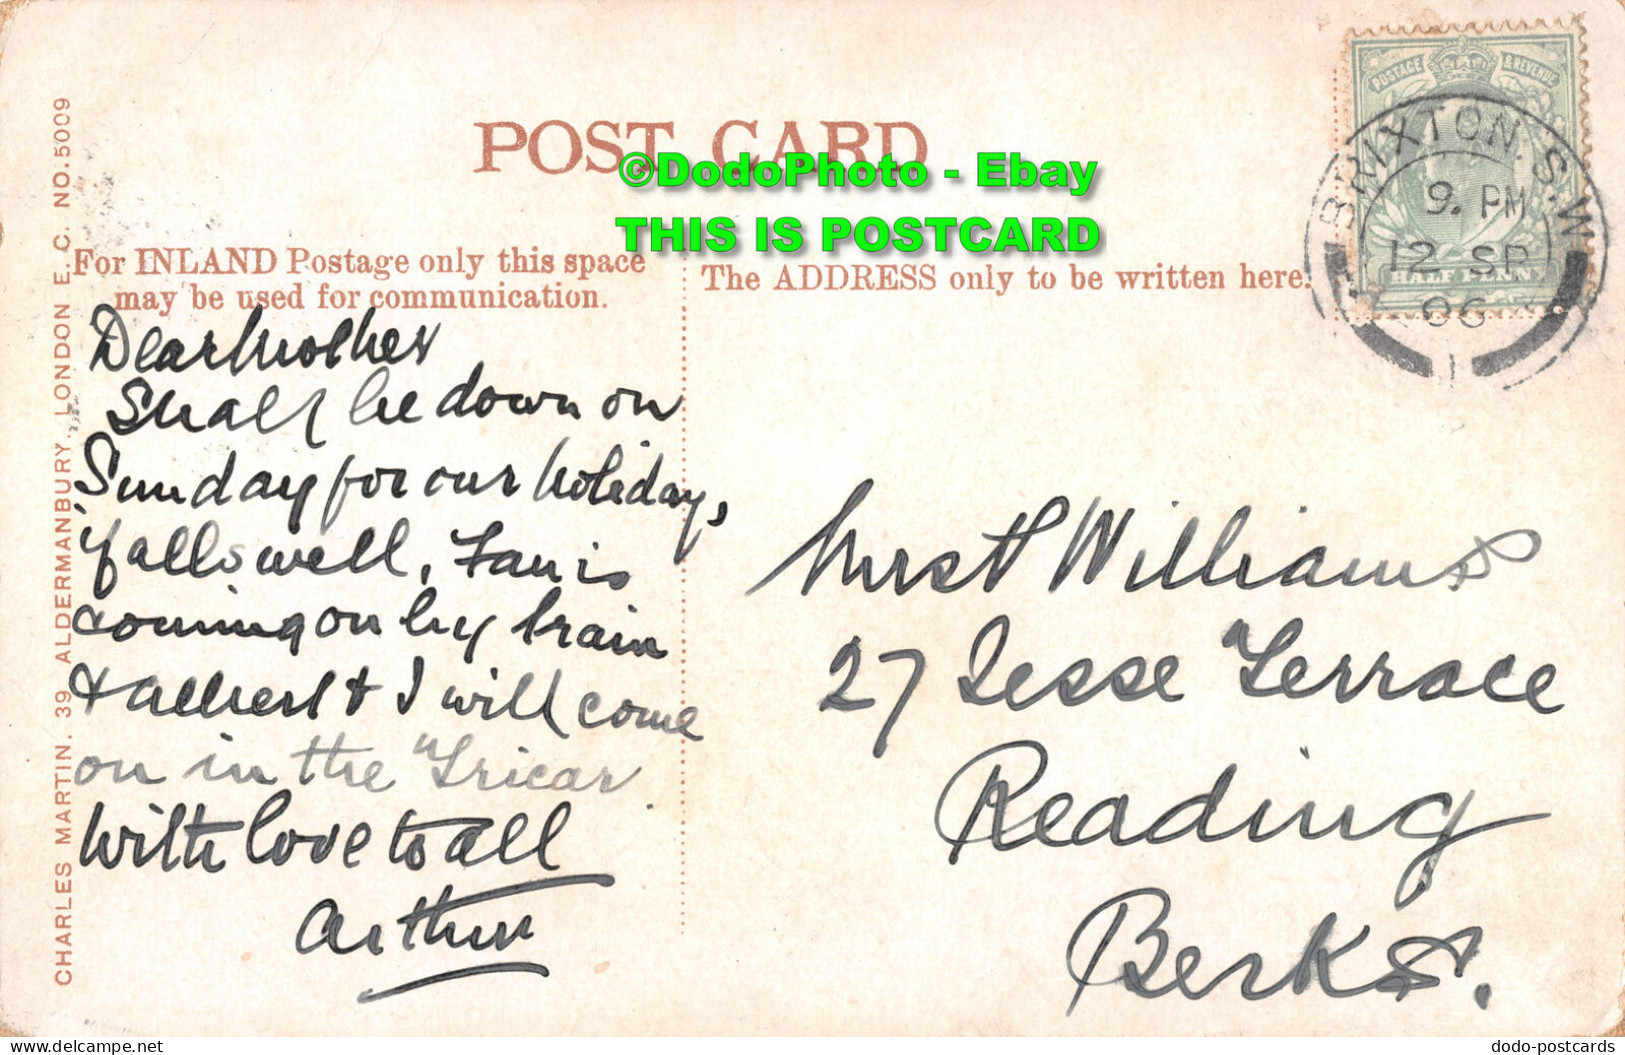 POST CARD
©DodoPhoto - Ebay
THIS IS POSTCARD
For INLAND Postage only this space
may be used for communication.
The ADDRESS only to be written here.
POSTAGE & REVENUE
HALF PENNY
BRIXTON. S.W.
9. PM
12 SP
06
1
CHARLES MARTIN. 39 ALDERMANBURY, LONDON E.C. NO.5009
Dear Mother
Shall be down on
Sunday for our holiday,
if all's well,      is
coming on by train
& Albert & I will come
on in the "Tricar
With love to all
Arthur
Mrs H Williams
27 Jesse Terrace
Reading
Berks.
delcampe.net
dodo-postcards